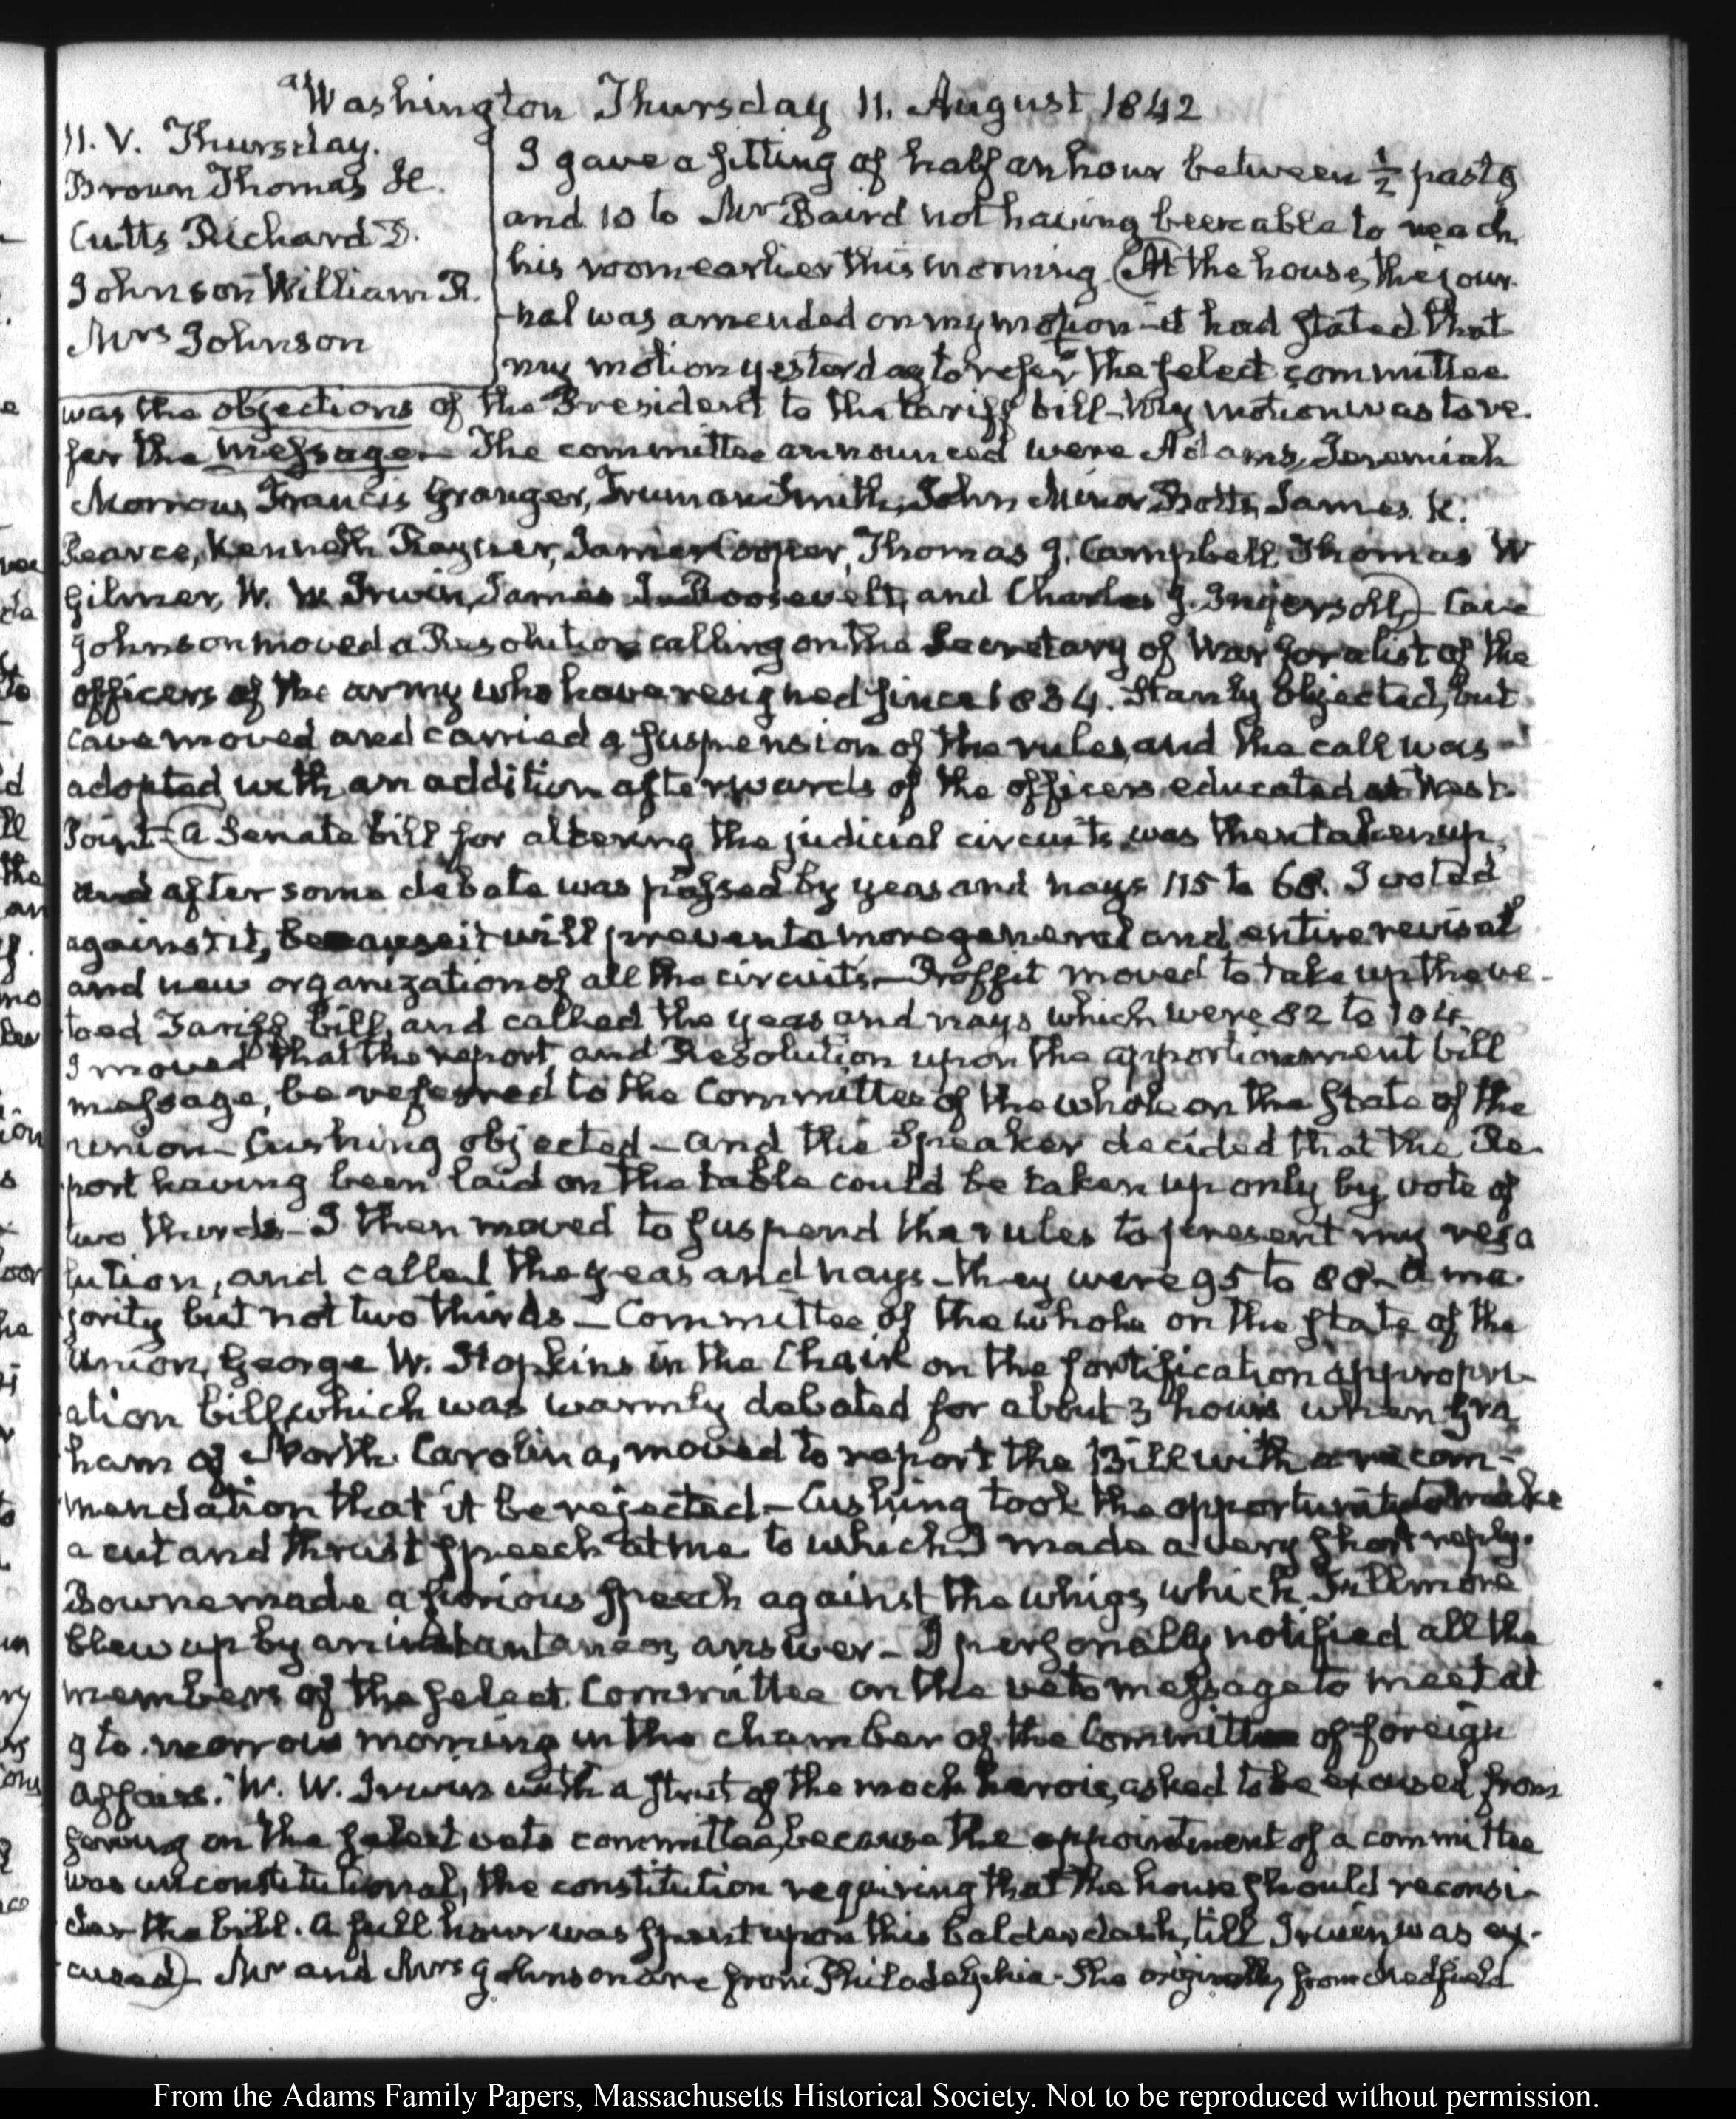 Washington Thursday 11. August 1842
11. V. Thursday.
Brown Thomas
Cutts Richard D.
Johnson William R.
Mrs Johnson
I gave a sitting of half an hour between ½ past 9
and 10 to Mr Baird not having been able to reach
his room earlier this morning. (At the house, the jour-
nal was amended on my motion - it had stated that
my motion yesterday to refer to the select committee
was the objections of the President to the tariff bill - My motion was to re-
fer the message - The committee announced were Adams, Jeremiah
Morrow, Francis Granger, Truman Smith, John Minor Botts, James
Pearce, Kenneth Rayner, James Cooper, Thomas J. Campbell, Thomas W
Gilmer, W. W. Irwin, James I. Roosevelt, and Charles J. Ingersoll,) - Cave
Johnson moved a Resolution calling on the Secretary of War for a list of the
officers of the army who have resigned since 1834. Stanly objected, but
Cave moved and carried a suspension of the rules, and the call was
adopted with an addition afterwards of the officers educated at West-
Point - (a Senate bill for altering the judicial circuits was then taken up,
and after some debate was passed by yeas and nays 115 to 68. I voted
against it, because it will prevent a more general and entire revisal
and new organization of all the circuits - Proffit moved to take up the ve-
toed Tariff bill, and called the yeas and nays which were 82 to 104.
I moved that the report and Resolution upon the apportionment bill
message, be referred to the Committee of the whole on the state of the
union - Cushing objected - and the Speaker decided that the Re-
port having been laid on the table could be taken up only by vote of
two thirds - I then moved to suspend the rules to present my reso
lution, and called the yeas and nays - they were 95 to 88 - a ma-
jority but not two thirds - Committee of the whole on the state of the
Union, George W. Hopkins in the Chair on the fortification appropri-
ation bill, which was warmly debated for about 3 hours when Gra
ham of North Carolina, moved to report the Bill with a recom-
mendation that it be rejected - Cushing took the opportunity to make
a cut and thrust speech at me to which I made a very short reply.
Bowne made a furious speech against the whigs, which Fillmore
blew up by an instantaneous answer - I personally notified all the
members of the select Committee on the veto message to meet at
9 to-morrow morning in the chamber of the Committee of foreign
Affairs. W. W. Irwin with a strut of the mock heroic, asked to be excused from
serving on the select veto committee, because the appointment of a committee
was unconstitutional, the constitution requiring that the house should reconsi-
der the bill. A full hour was spent upon this balderdash, till Irwin was ex-
cused) - Mr and Mrs Johnson are from Philadelphia - She originally from Medfield
From the Adams Family Papers, Massachusetts Historical Society. Not to be reproduced without permission.